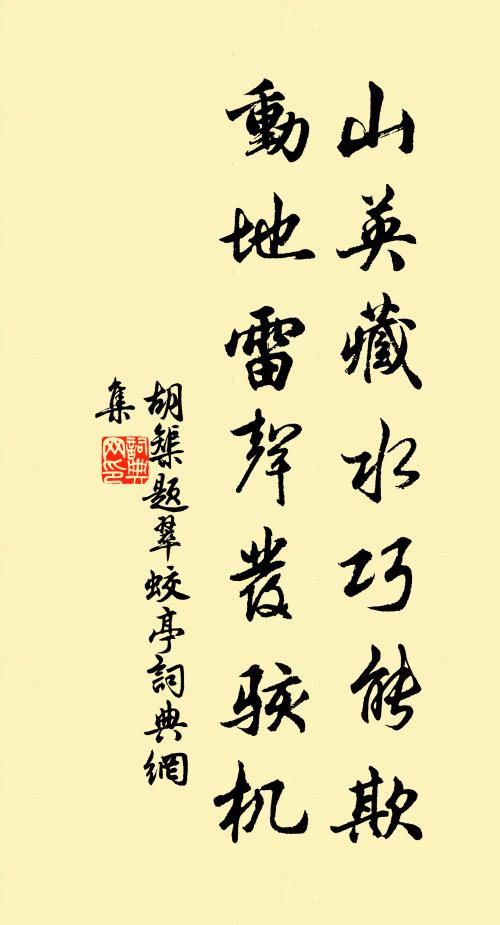 山英藏水巧能欺
動地雷聲發駭机
胡榘題翠蛟亭詞典網
集
詞典网印